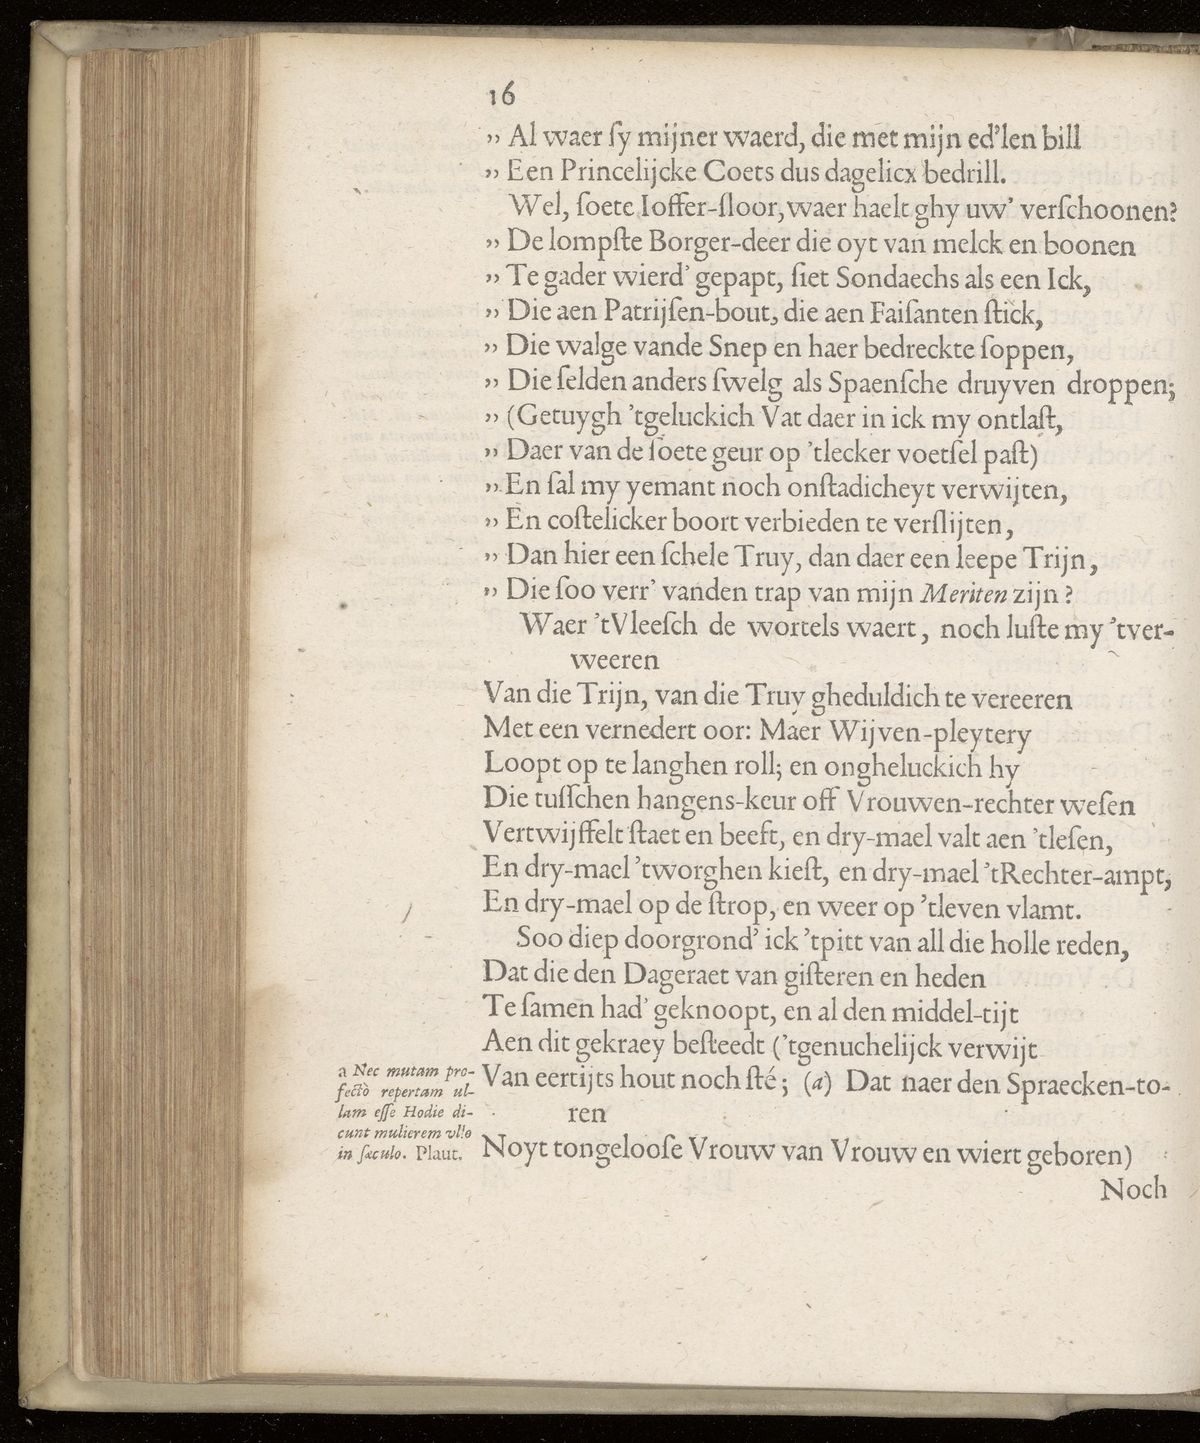 16
„ Al waer ſy mijner waerd, die met mijn ed'len bill
„ Een Princelijcke Coets dus dagelicx bedrill.
Wel, ſoete Ioffer-ſloor, waer haelt ghy uw' verſchoonen?
„ De lompſte Borger-deer die oyt van melck en boonen
„ Te gader wierd' gepapt, ſiet Sondaechs als een Ick,
„ Die aen Patrijſen-bout, die aen Faiſanten ſtick,
„ Die walge vande Snep en haer bedreckte ſoppen,
„ Die ſelden anders ſwelg als Spaenſche druyven droppen;
„ (Getuygh 'tgeluckich Vat daer in ick my ontlaſt,
„ Daer van de ſoete geur op 'tlecker voetſel paſt)
„ En ſal my yemant noch onſtadicheyt verwijten,
„ En coſtelicker boort verbieden te verſlijten,
„ Dan hier een ſchele Truy, dan daer een leepe Trijn,
„ Die ſoo verr' vanden trap van mijn Meriten zijn?
Waer 'tVleeſch de wortels waert, noch luſte my 'tver-
weeren
Van die Trijn, van die Truy gheduldich te vereeren
Met een vernedert oor: Maer Wijven-pleytery
Loopt op te langhen roll; en ongheluckich hy
Die tuſſchen hangens-keur off Vrouwen-rechter weſen
Vertwijffelt ſtaet en beeft, en dry-mael valt aen 'tleſen,
En dry-mael 'tworghen kieſt, en dry-mael 'tRechter-ampt,
En dry-mael op de ſtrop, en weer op 'tleven vlamt.
Soo diep doorgrond' ick 'tpitt van all die holle reden,
Dat die den Dageraet van giſteren en heden
Te ſamen had' geknoopt, en al den middel-tijt
Aen dit gekraey beſteedt ('tgenuchelijck verwijt
Van eertijts hout noch ſté; (a) Dat naer den Spraecken-to-
ren
Noyt tongelooſe Vrouw van Vrouw en wiert geboren)
Noch
a Nec mutam pro-
fectò repertam ul-
lam eſſe Hodie di-
cunt mulierem vllo
in ſæculo. Plaut.